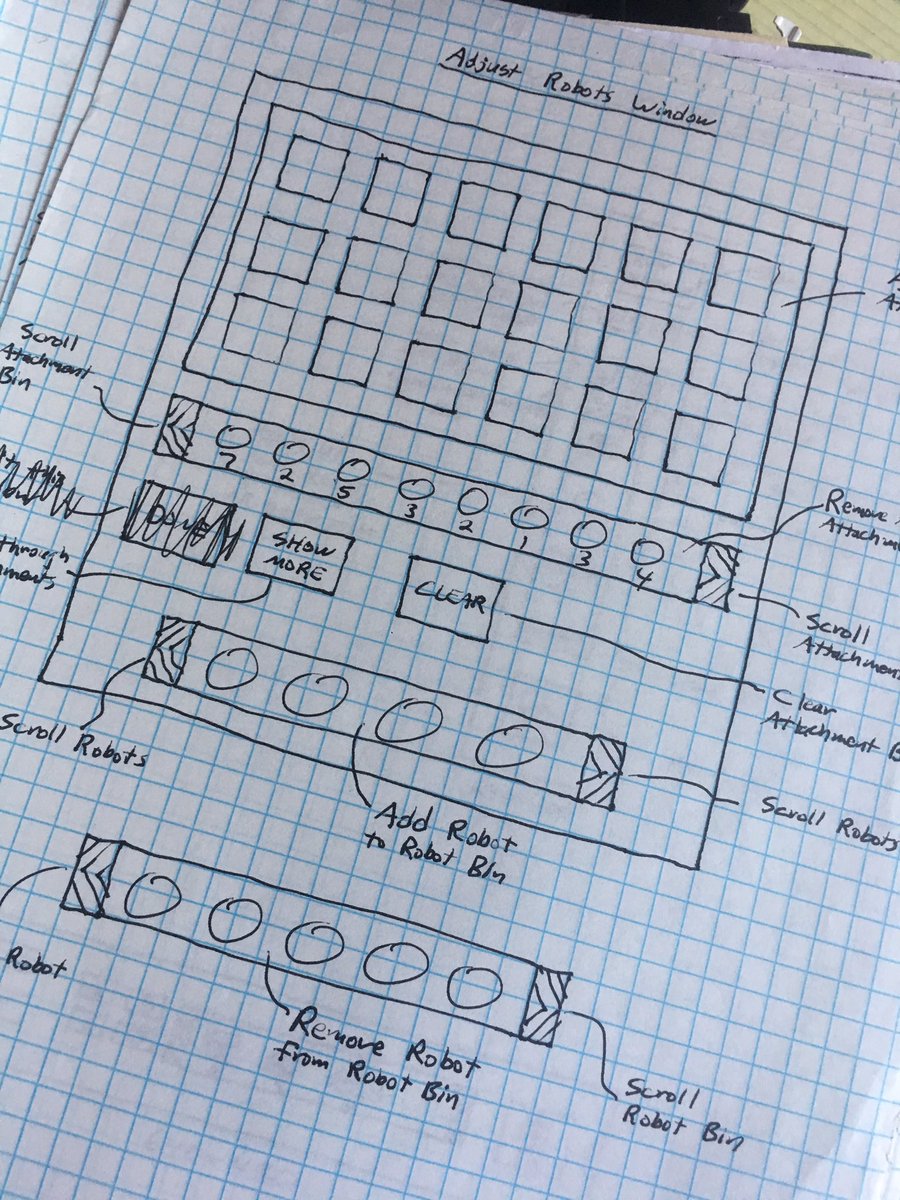 Adjust Robots Window
Scroll
Attachment
Bin
7 2 5 3 2 1 3 4
Remove
DONE
SHOW
MORE
through
CLEAR
Scroll
Attachment
Clear
Attachment B
Scroll Robots
Scroll Robots
Add Robot
to Robot Bin
Robot
Remove Robot
from Robot Bin
Scroll
Robot Bin